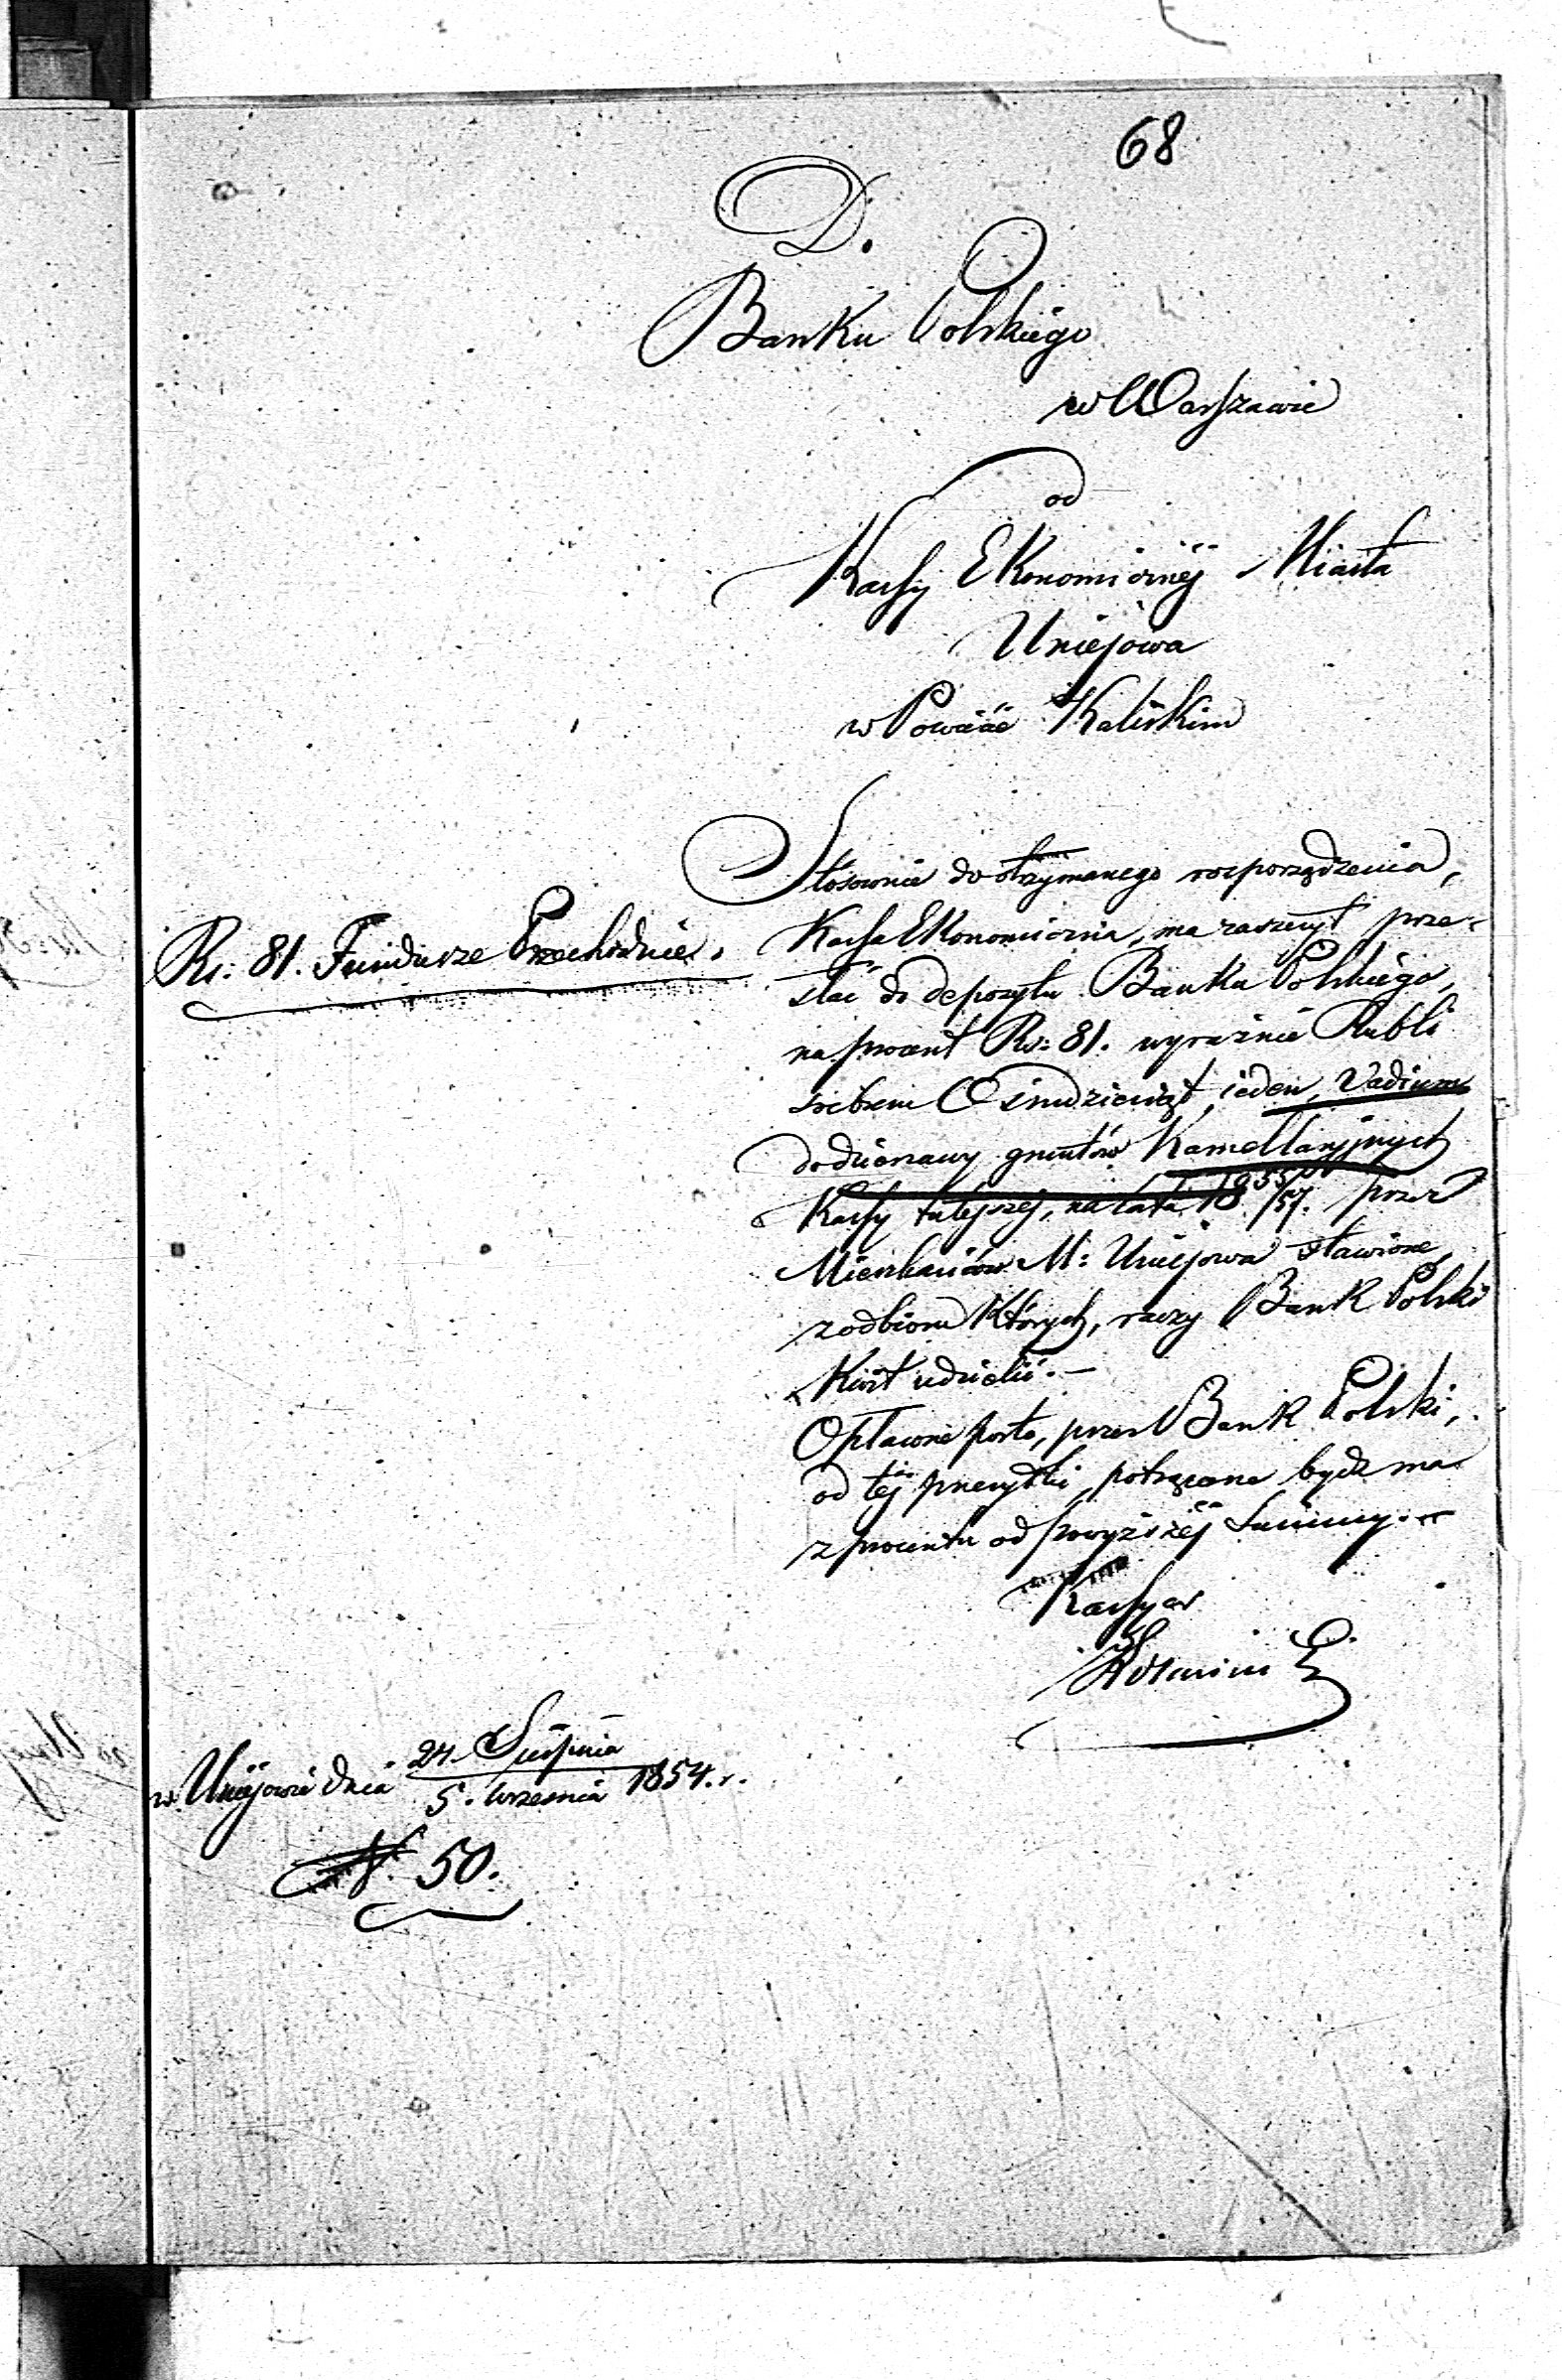 68
D.
Banku Polskiego
w Warszawie
od
Kassy Ekonomicznéj Miasta
Uniejowa
w Powiecie Kaliskim
Stosownie do otrzymanego rozporządzenia,
Rs: 81. Fundusze Przechodnie.
Kassa Ekonomiczna, ma zaszczyt prze-
słać do depozytu Banku Polskiego,
na procent Rs: 81. wyraźnie Rubli
srebrem Ośmdziesiąt jeden, Vadium
do dzierżawy gruntów Kamellaryjnych
Kassy tutejszej, na lata 1855/57. przez
Mieszkańców M: Uniejowa stawione,
z odbioru których, raczy Bank Polski
Kwit udzielić.—
Opłacone porto, przez Bank Polski,
od téj przesyłki, potrącone bydź ma
z procentu od powyższéj Summy.—
Kassyer
w Uniejowie dnia 24. Sierpnia / 5. Września 1854. r.
N. 50.